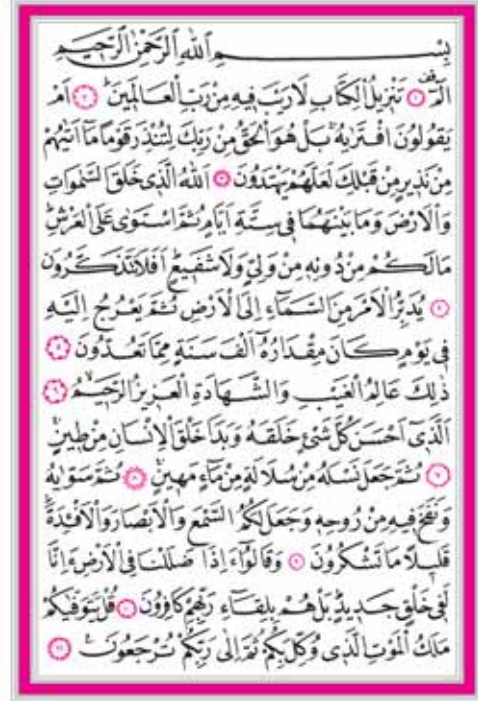 بِسْمِ اللّٰهِ الرَّحْمٰنِ الرَّحٖيمِ
الٓمٓ ۚ ﴿١﴾ تَنْزٖيلُ الْكِتَابِ لَا رَيْبَ فٖيهِ مِنْ رَبِّ الْعَالَمٖينَ ؕ ﴿٢﴾ اَمْ
يَقُولُونَ افْتَرٰيهُ ۚ بَلْ هُوَ الْحَقُّ مِنْ رَبِّكَ لِتُنْذِرَ قَوْمًا مَٓا اَتٰيهُمْ
مِنْ نَذٖيرٍ مِنْ قَبْلِكَ لَعَلَّهُمْ يَهْتَدُونَ ﴿٣﴾ اَللّٰهُ الَّذٖى خَلَقَ السَّمٰوَاتِ
وَالْاَرْضَ وَمَا بَيْنَهُمَا فٖى سِتَّةِ اَيَّامٍ ثُمَّ اسْتَوٰى عَلَى الْعَرْشِ ؕ
مَا لَكُمْ مِنْ دُونِهٖ مِنْ وَلِىٍّ وَلَا شَفٖيعٍ ؕ اَفَلَا تَتَذَكَّرُونَ
﴿٤﴾ يُدَبِّرُ الْاَمْرَ مِنَ السَّمَٓاءِ اِلَى الْاَرْضِ ثُمَّ يَعْرُجُ اِلَيْهِ
فٖى يَوْمٍ كَانَ مِقْدَارُهُٓ اَلْفَ سَنَةٍ مِمَّا تَعُدُّونَ ﴿٥﴾
ذٰلِكَ عَالِمُ الْغَيْبِ وَالشَّهَادَةِ الْعَزٖيزُ الرَّحٖيمُ ۙ ﴿٦﴾
اَلَّذٖٓى اَحْسَنَ كُلَّ شَىْءٍ خَلَقَهُ وَبَدَاَ خَلْقَ الْاِنْسَانِ مِنْ طٖينٍ ۚ
﴿٧﴾ ثُمَّ جَعَلَ نَسْلَهُ مِنْ سُلَالَةٍ مِنْ مَٓاءٍ مَهٖينٍ ۚ ﴿٨﴾ ثُمَّ سَوّٰيهُ
وَنَفَخَ فٖيهِ مِنْ رُوحِهٖ وَجَعَلَ لَكُمُ السَّمْعَ وَالْاَبْصَارَ وَالْاَفْـِٔدَةَ ؕ
قَلٖيلًا مَا تَشْكُرُونَ ﴿٩﴾ وَقَالُٓوا ءَاِذَا ضَلَلْنَا فِى الْاَرْضِ ءَاِنَّا
لَفٖى خَلْقٍ جَدٖيدٍ ؕ بَلْ هُمْ بِلِقَٓاءِ رَبِّهِمْ كَافِرُونَ ﴿١٠﴾ قُلْ يَتَوَفّٰيكُمْ
مَلَكُ الْمَوْتِ الَّذٖى وُكِّلَ بِكُمْ ثُمَّ اِلٰى رَبِّكُمْ تُرْجَعُونَ ۟ ﴿١١﴾